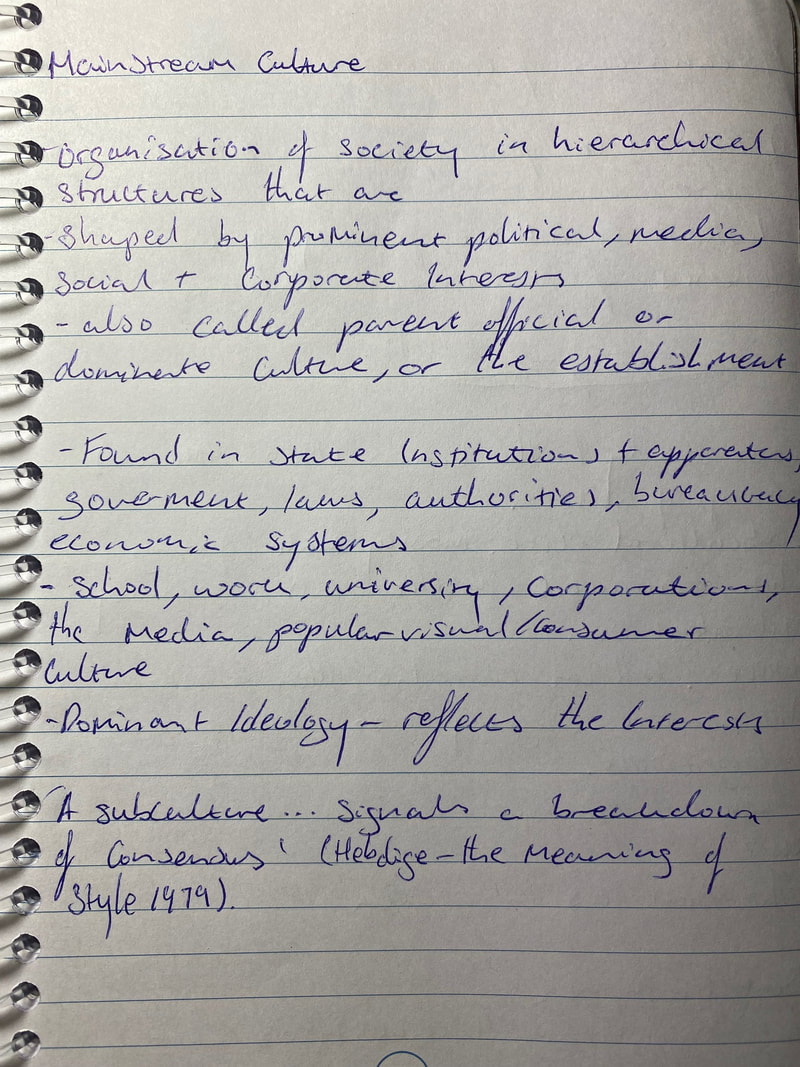 Mainstream Culture
- Organisation of society in hierarchical
structures that are
- shaped by prominent political, media,
social + corporate interests
- also called parent official or
dominente culture, or the establishment
- Found in state institutions + apperatus,
goverment, laws, authorities, bureaucracy
economic systems
- School, work, university, corporations,
the media, popular visual/consumer
culture
- Dominant Ideology - reflects the interests
'A subculture... signals a breakdown
of consensus' (Hebdige - the meaning of
Style 1979).